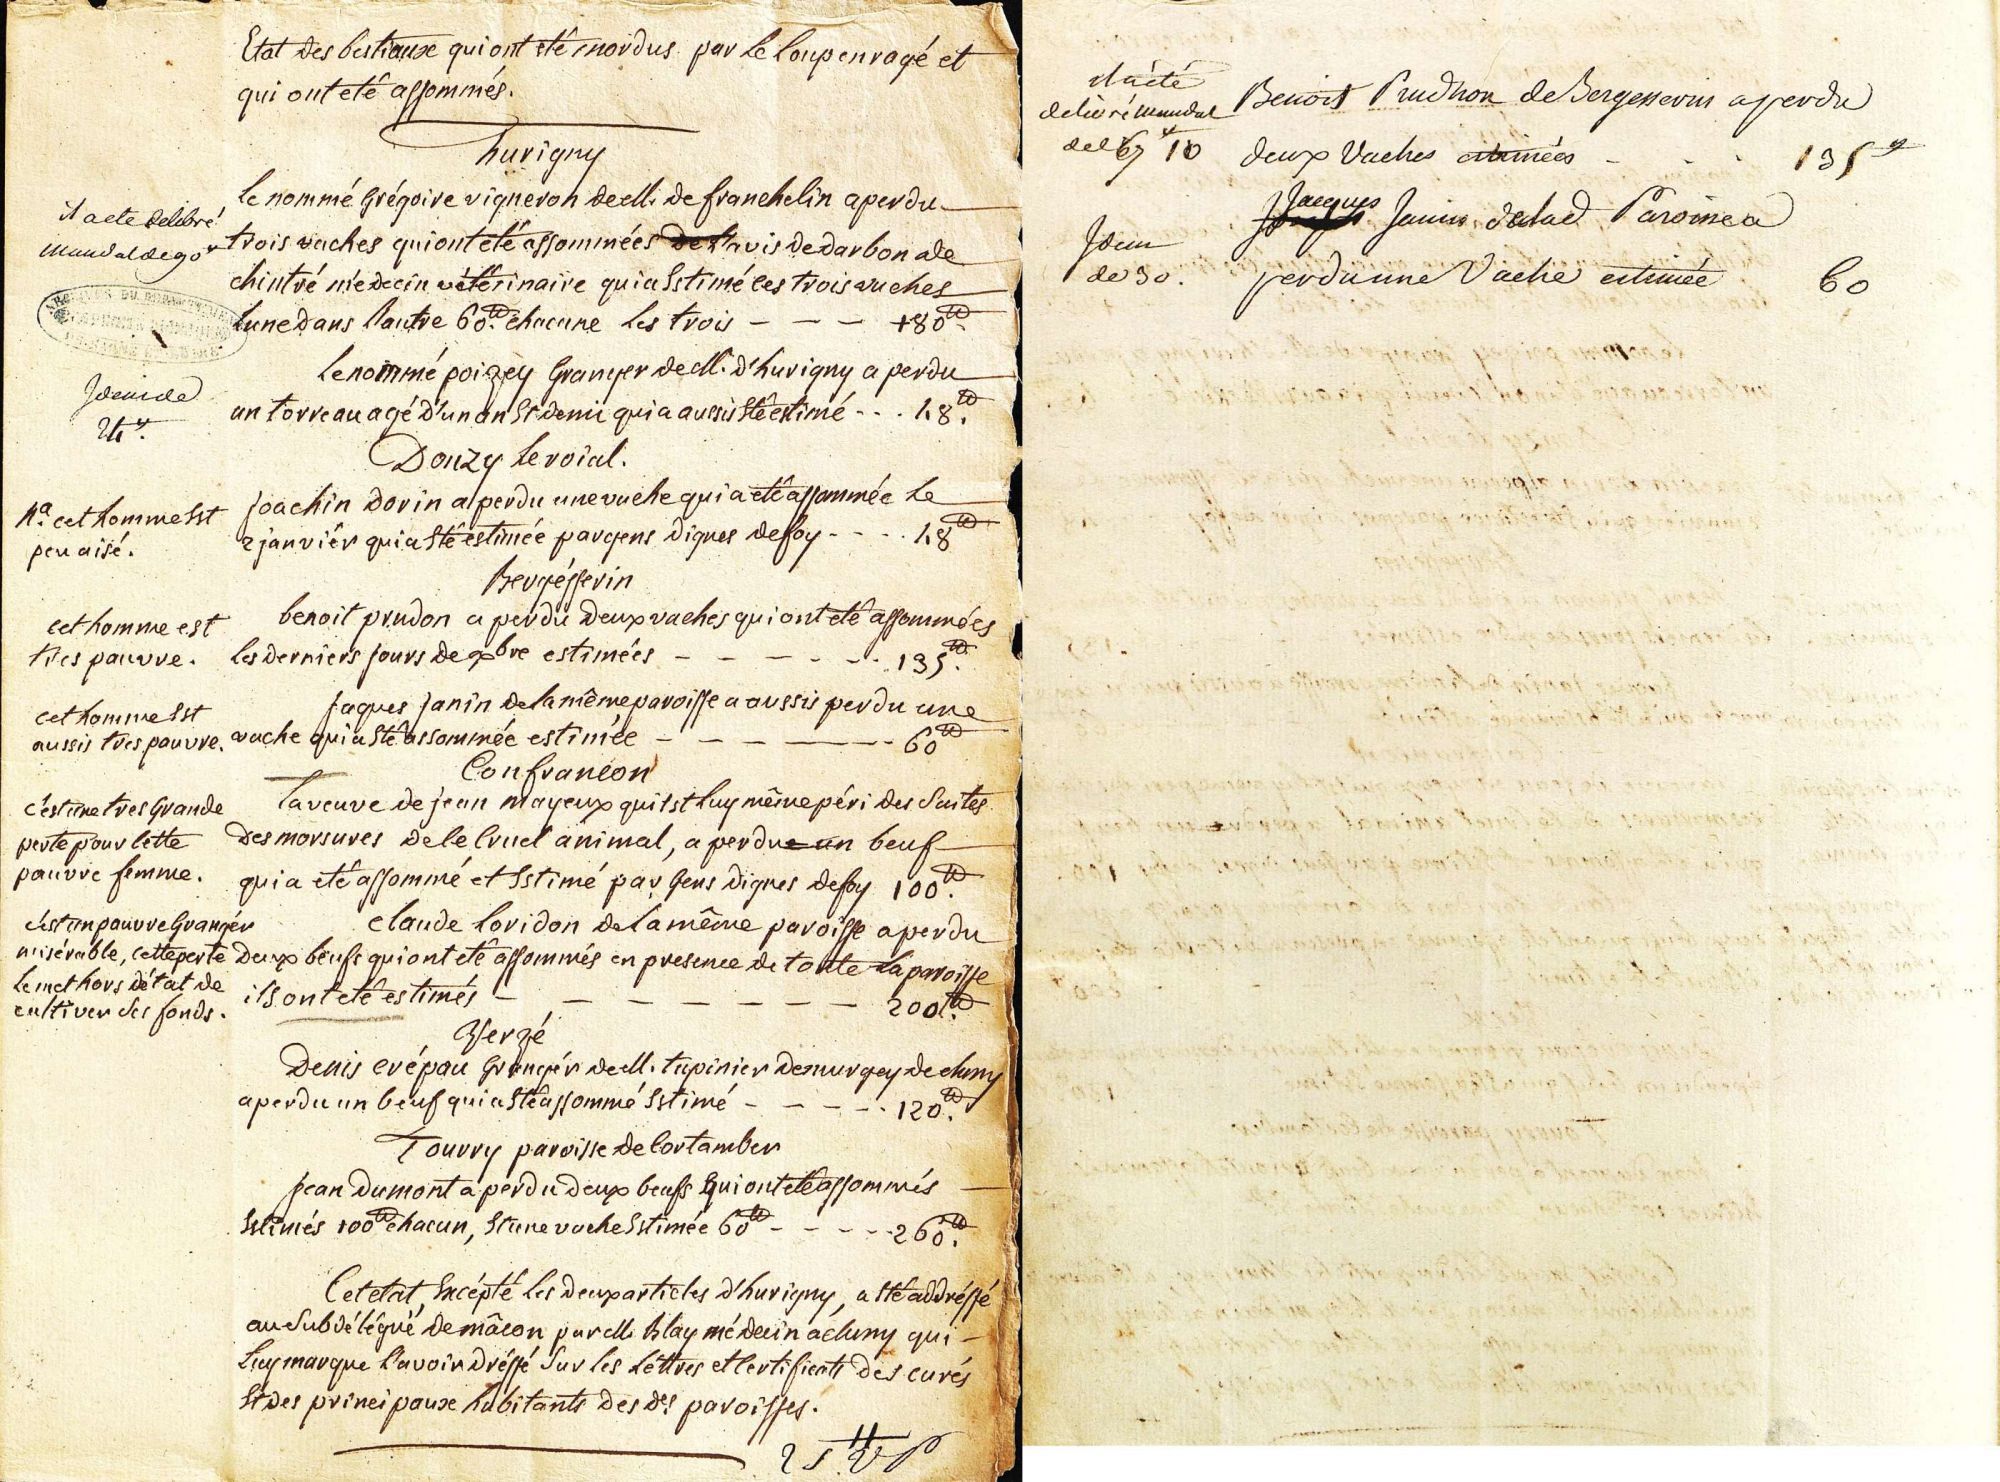 Etat des bestiaux qui ont eté mordus par le loup enragé et
qui ont eté assommés.
hurigny
le nommé Grégoire vigneron de M. de franchelin a perdu
il a ete delibré
mandat de 90
trois vaches qui ont eté assommées de l'avis de darbon de
chintré médecin vétérinaire qui a Estimé les trois vaches
lune dans l'autre 60.# chacune les trois - - - 180#.
le nommé poizey Granger de M. d'hurigny a perdu
Idem de
24#.
un torreau agé d'un an Et demi qui a aussis Eté estimé - - . 48#.
Donzy le roial.
joachin dorin a perdu une vache qui a eté assommée le
Na. cet homme Est
peu aisé.
2 janviér qui a Eté estimée par gens dignes de foy - - - . 48#
Bergésserin
benoit prudon a perdu deux vaches qui ont eté assommées
cet homme est
tres pauvre.
les derniers jours de xbre estimées - - - - - . 135#.
jaques janin de la même paroisse a aussis perdu une
cet homme Est
aussis tres pauvre.
vache qui a Eté assommée estimée - - - - - 60#
Confrancon
la veuve de jean mayeux qui Est luy même péri des suites
c'est une tres Grande
perte pour cette
pauvre femme.
des morsures de ce Cruel animal, a perdu un beuf
qui a eté assommé et Estimé par Gens dignes de foy 100#.
claude loridon de la même paroisse a perdu
c'est un pauvre Grangér
misérable, cette perte
le met hors d'état de
cultiver ses fonds.
deux beufs qui ont eté assommés en presence de toute la paroisse
ils ont eté estimés - - - - - - - 200#.
Verzé
Denis crépau Grangér de M. tupinier demurgey de cluny
a perdu un beuf qui a Eté assommé Estimé - - - - . 120#.
Tourry paroisse de Cortamber
jean dumont a perdu deux beufs qui ont eté assommés
Estimés 100# chacun, Et une vache Estimée 60# - - - - 260#.
Cet etat, Excépté les deux articles d'hurigny, a Eté addréssé
au Subdélégué de mâcon par M. blay médecin a cluny qui
luy marque l'avoir dréssé sur les léttres et Certificats des curés
Et des principaux habitants des des. paroisses.
Il a été
delivré mandat
de 67# 10
Benoit Prudhon de Bergesserin a perdu
deux Vaches estimées - - - 135#
Idem
de 30.
Jacques Janin de lad Paroisse a
perdu une Vache estimée 60